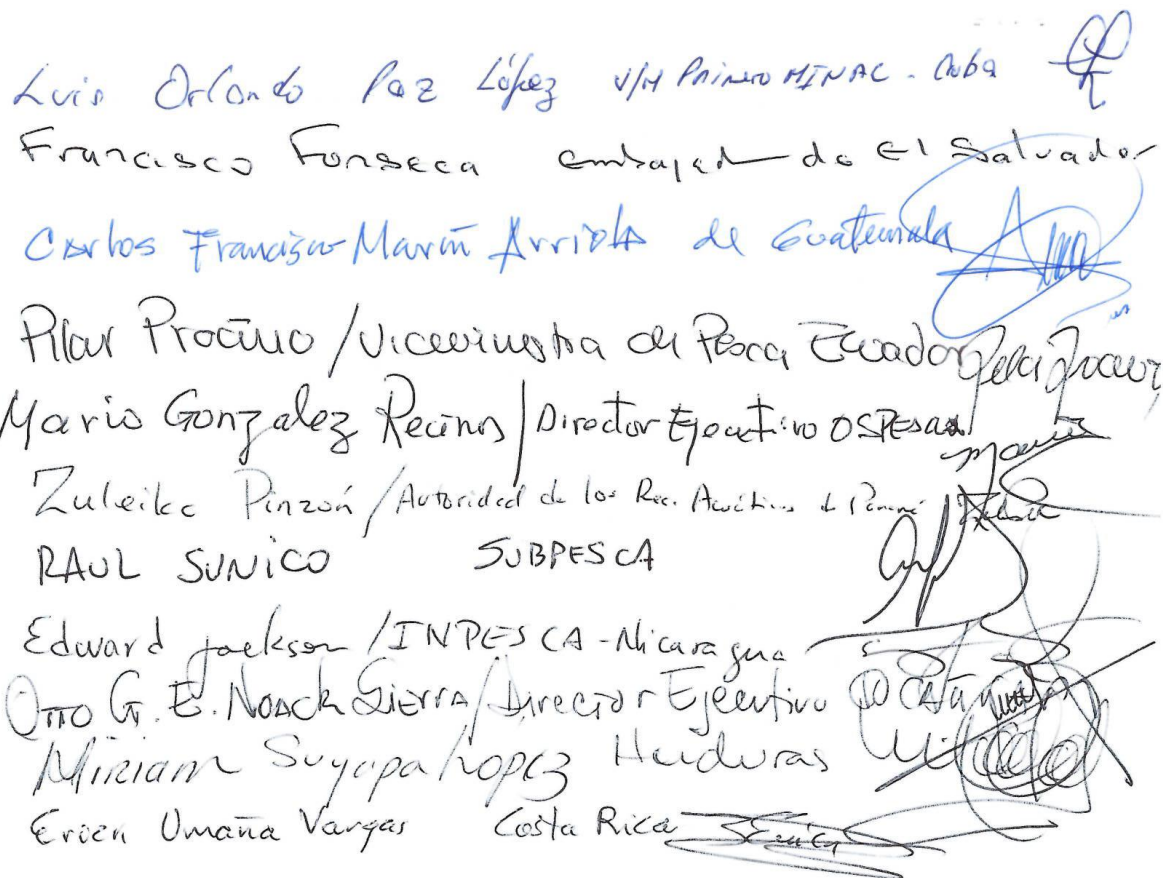 Luis Orlando Paz López V/M Primero MINAL - Cuba
Francisco Fonseca embajada de El Salvador
Carlos Francisco Marín Arriola de Guatemala
Pilar Proaño / Viceministra de Pesca Ecuador
Mario Gonzalez Recinos / Director Ejecutivo OSPESCA
Zuleika Pinzón / Autoridad de los Rec. Acuáticos de Panamá
RAUL SUNICO SUBPESCA
Edward Jackson / INPESCA - Nicaragua
OTTO G. E. NOACK SIERRA / Director Ejecutivo
Miriam Suyapa Lopez Honduras
Ericen Umaña Vargas Costa Rica